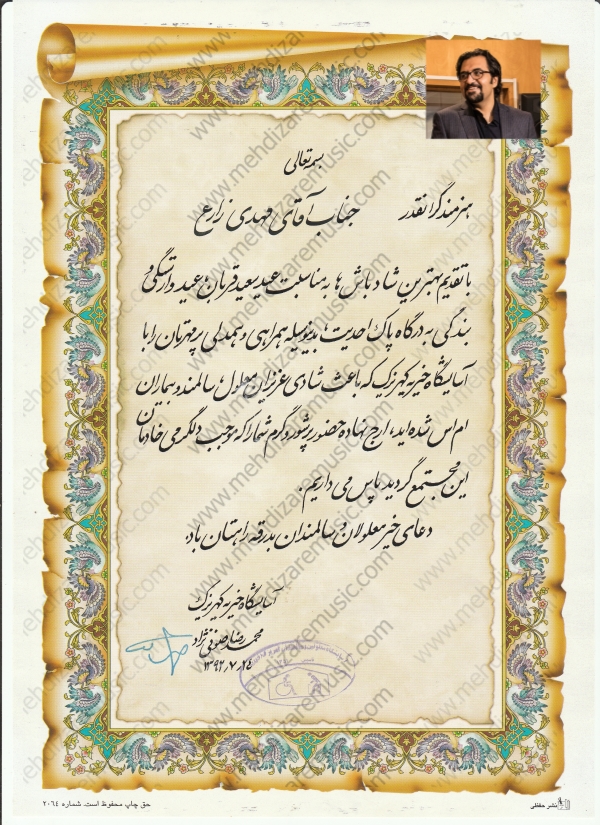 بسمه تعالی
هنرمند گرانقدر جناب آقای مهدی زارع
با تقدیم بهترین شادباش ها به مناسبت عید سعید قربان؛ عید وارستگی و
بندگی به درگاه پاک احدیت؛ بدینوسیله همراهی و همدلی پرمهرتان را با
آسایشگاه خیریه کهریزک که باعث شادی عزیزان معلول، سالمند و بیماران
ام اس شده اید، ارج نهاده حضور پرشور و گرم شما را که موجب دلگرمی خادمان
این مجتمع گردید سپاس می داریم.
دعای خیر معلولان و سالمندان بدرقه راهتان باد.
آسایشگاه خیریه کهریزک
محمدرضا صوفی نژاد
۱۳۹۲٫۷٫۲٤
www.mehdizaremusic.com
نشر حفظی
حق چاپ محفوظ است. شماره ۲۰٦٤